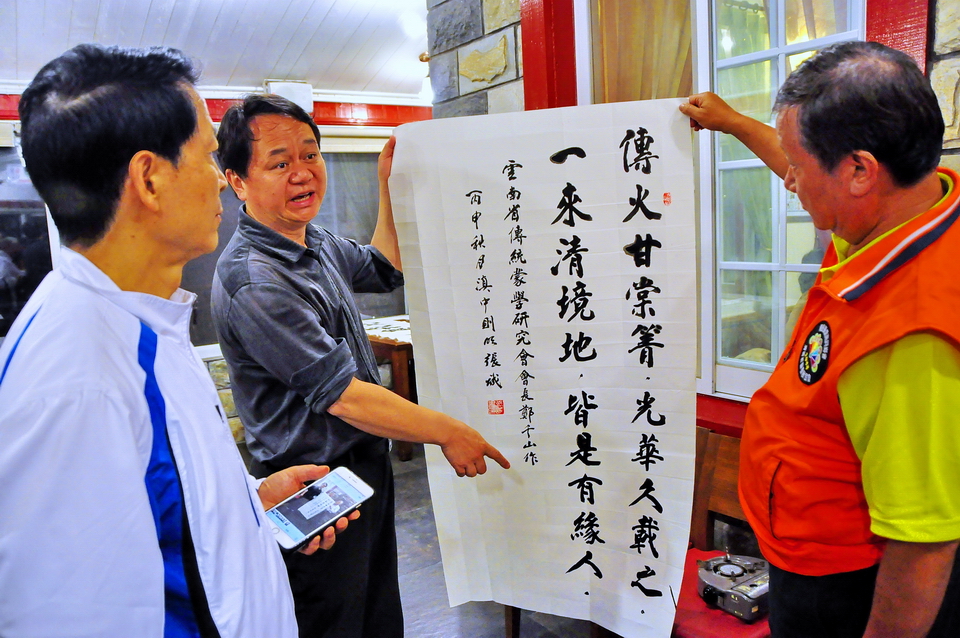 傳火甘棠箐．光華久載之．
一來清境地．皆是有緣人．
雲南省傳統蒙學研究會會長鄭千山作
丙申秋月滇中則旼張斌